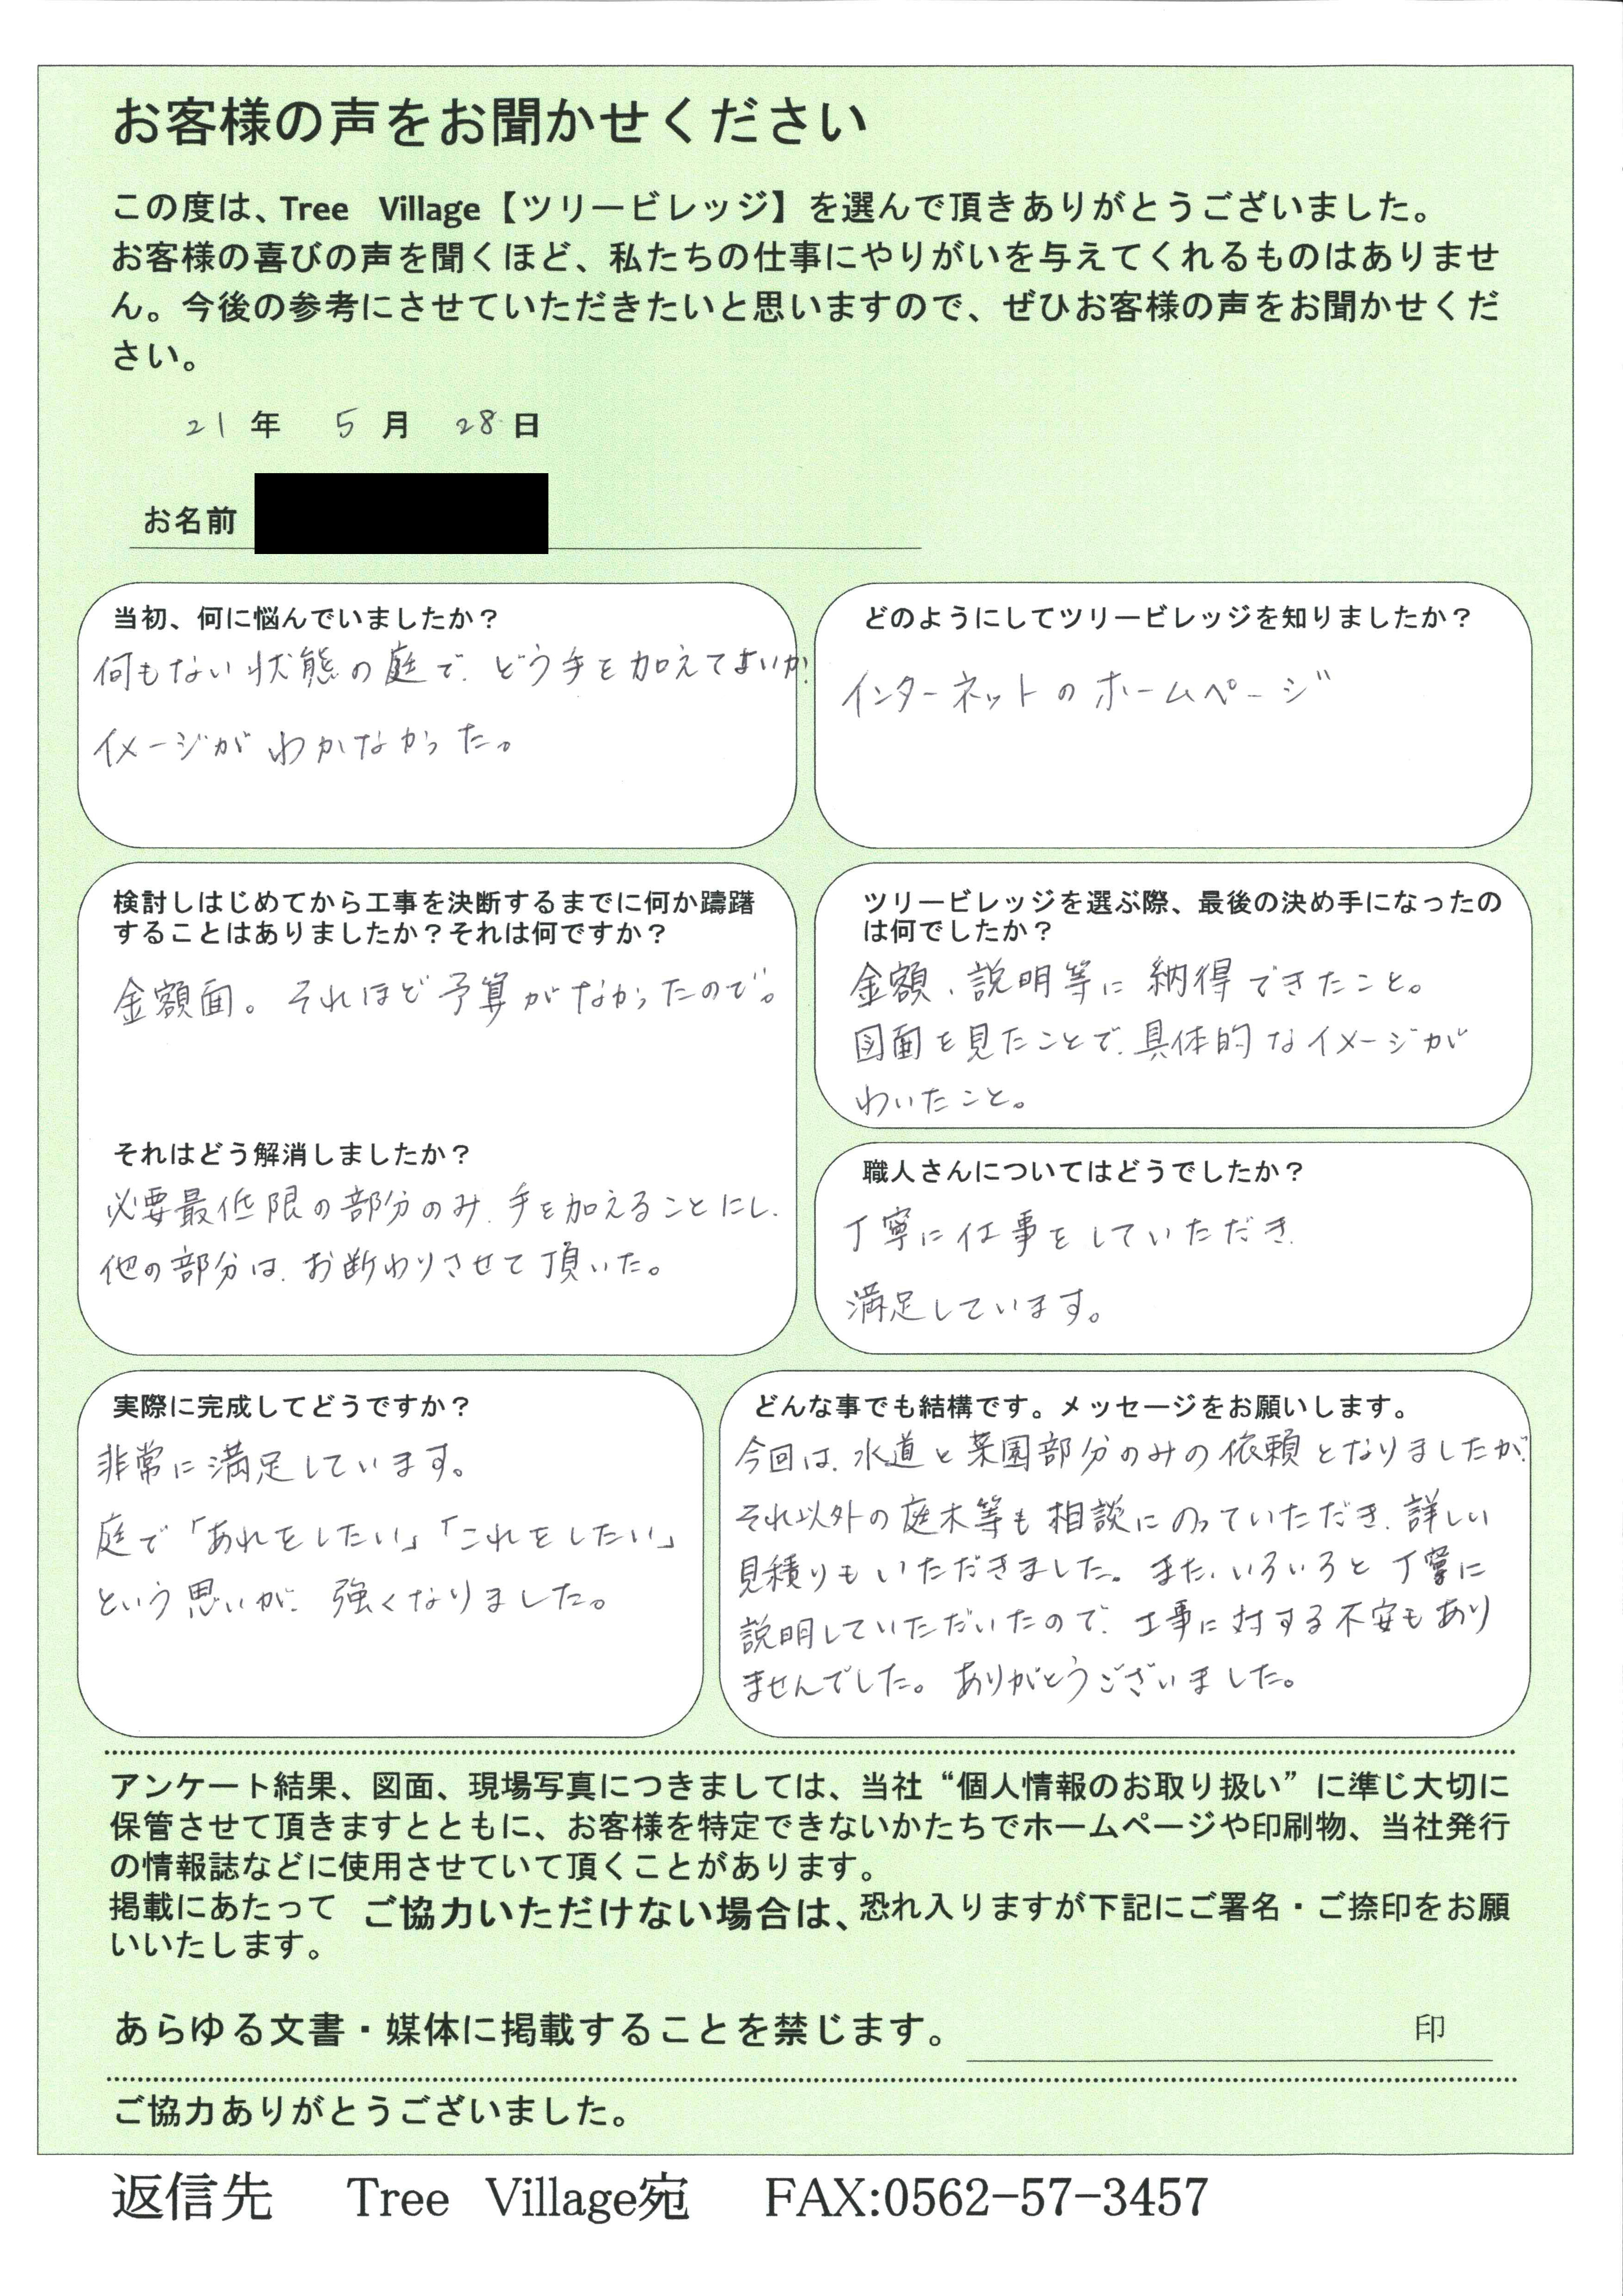 お客様の声をお聞かせください
この度は、Tree Village【ツリービレッジ】を選んで頂きありがとうございました。
お客様の喜びの声を聞くほど、私たちの仕事にやりがいを与えてくれるものはありませ
ん。今後の参考にさせていただきたいと思いますので、ぜひお客様の声をお聞かせくだ
さい。
21年 5月 28日
お名前
当初、何に悩んでいましたか？
何もない状態の庭で、どう手を加えてよいか、
イメージがわかなかった。
どのようにしてツリービレッジを知りましたか？
インターネットのホームページ
検討しはじめてから工事を決断するまでに何か躊躇
することはありましたか？それは何ですか？
金額面。それほど予算がなかったので。
それはどう解消しましたか？
必要最低限の部分のみ、手を加えることにし、
他の部分は、お断わりさせて頂いた。
ツリービレッジを選ぶ際、最後の決め手になったの
は何でしたか？
金額、説明等に納得できたこと。
図面を見たことで、具体的なイメージが
わいたこと。
職人さんについてはどうでしたか？
丁寧に仕事をしていただき、
満足しています。
実際に完成してどうですか？
非常に満足しています。
庭で「あれをしたい」「これをしたい」
という思いが、強くなりました。
どんな事でも結構です。メッセージをお願いします。
今回は、水道と菜園部分のみの依頼となりましたが、
それ以外の庭木等も相談にのっていただき、詳しい
見積りもいただきました。また、いろいろと丁寧に
説明していただいたので、工事に対する不安もあり
ませんでした。ありがとうございました。
アンケート結果、図面、現場写真につきましては、当社“個人情報のお取り扱い”に準じ大切に
保管させて頂きますとともに、お客様を特定できないかたちでホームページや印刷物、当社発行
の情報誌などに使用させていて頂くことがあります。
掲載にあたって ご協力いただけない場合は、恐れ入りますが下記にご署名・ご捺印をお願
いいたします。
あらゆる文書・媒体に掲載することを禁じます。 印
ご協力ありがとうございました。
返信先 Tree Village宛 FAX:0562-57-3457